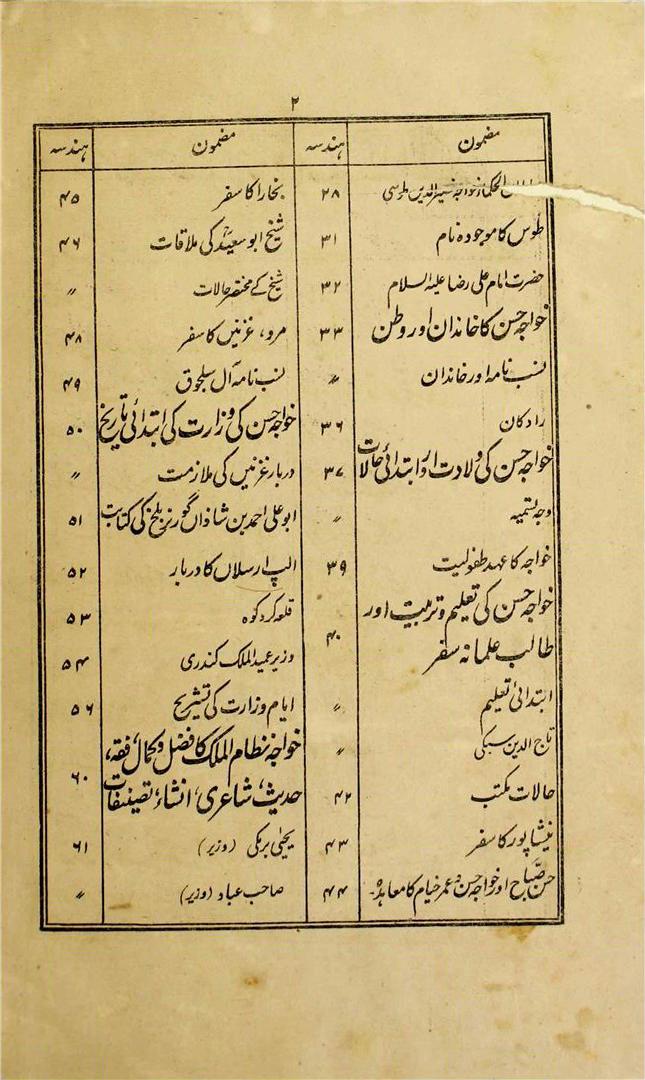 ۲
مضمون ہندسہ مضمون ہندسہ
الحکماء خواجہ نصیر الدین طوسی ۲۸
طوس کا موجودہ نام ۳۱
حضرت امام علی رضا علیہ السلام ۳۲
خواجہ حسن کا خاندان اور وطن ۳۳
نسب نامہ اور خاندان 〃
رادکان ۳۶
خواجہ حسن کی ولادت اور ابتدائی حالات ۳۷
وجہ تسمیہ 〃
خواجہ کا عہد طفولیت ۳۹
خواجہ حسن کی تعلیم و تربیت اور
طالب علمانہ سفر ۴۰
ابتدائی تعلیم 〃
تاج الدین سبکی 〃
حالات مکتب ۴۲
نیشاپور کا سفر ۴۳
حسن صبّاح اور خواجہ حسن و عمر خیام کا معاہدہ۔ ۴۴
بخارا کا سفر ۴۵
شیخ ابو سعیدؒ کی ملاقات ۴۶
شیخ کے مختصر حالات 〃
مرو، غزنیں کا سفر ۴۸
نسب نامہ آل سلجوق ۴۹
خواجہ حسن کی وزارت کی ابتدائی تاریخ ۵۰
دربار غزنیں کی ملازمت 〃
ابو علی احمد بن شاذاں گورنر بلخ کی کتابت ۵۱
الپ ارسلاں کا دربار ۵۲
قلعہ گرد کوہ ۵۳
وزیر عمید الملک کندری ۵۴
ایام وزارت کی تشریح ۵۶
خواجہ نظام الملک کا فضل و کمال، فقہ،
حدیث، شاعری، انشاء، تصنیفات ۶۰
یحییٰ برمکی (وزیر) ۶۱
صاحب عباد (وزیر) 〃